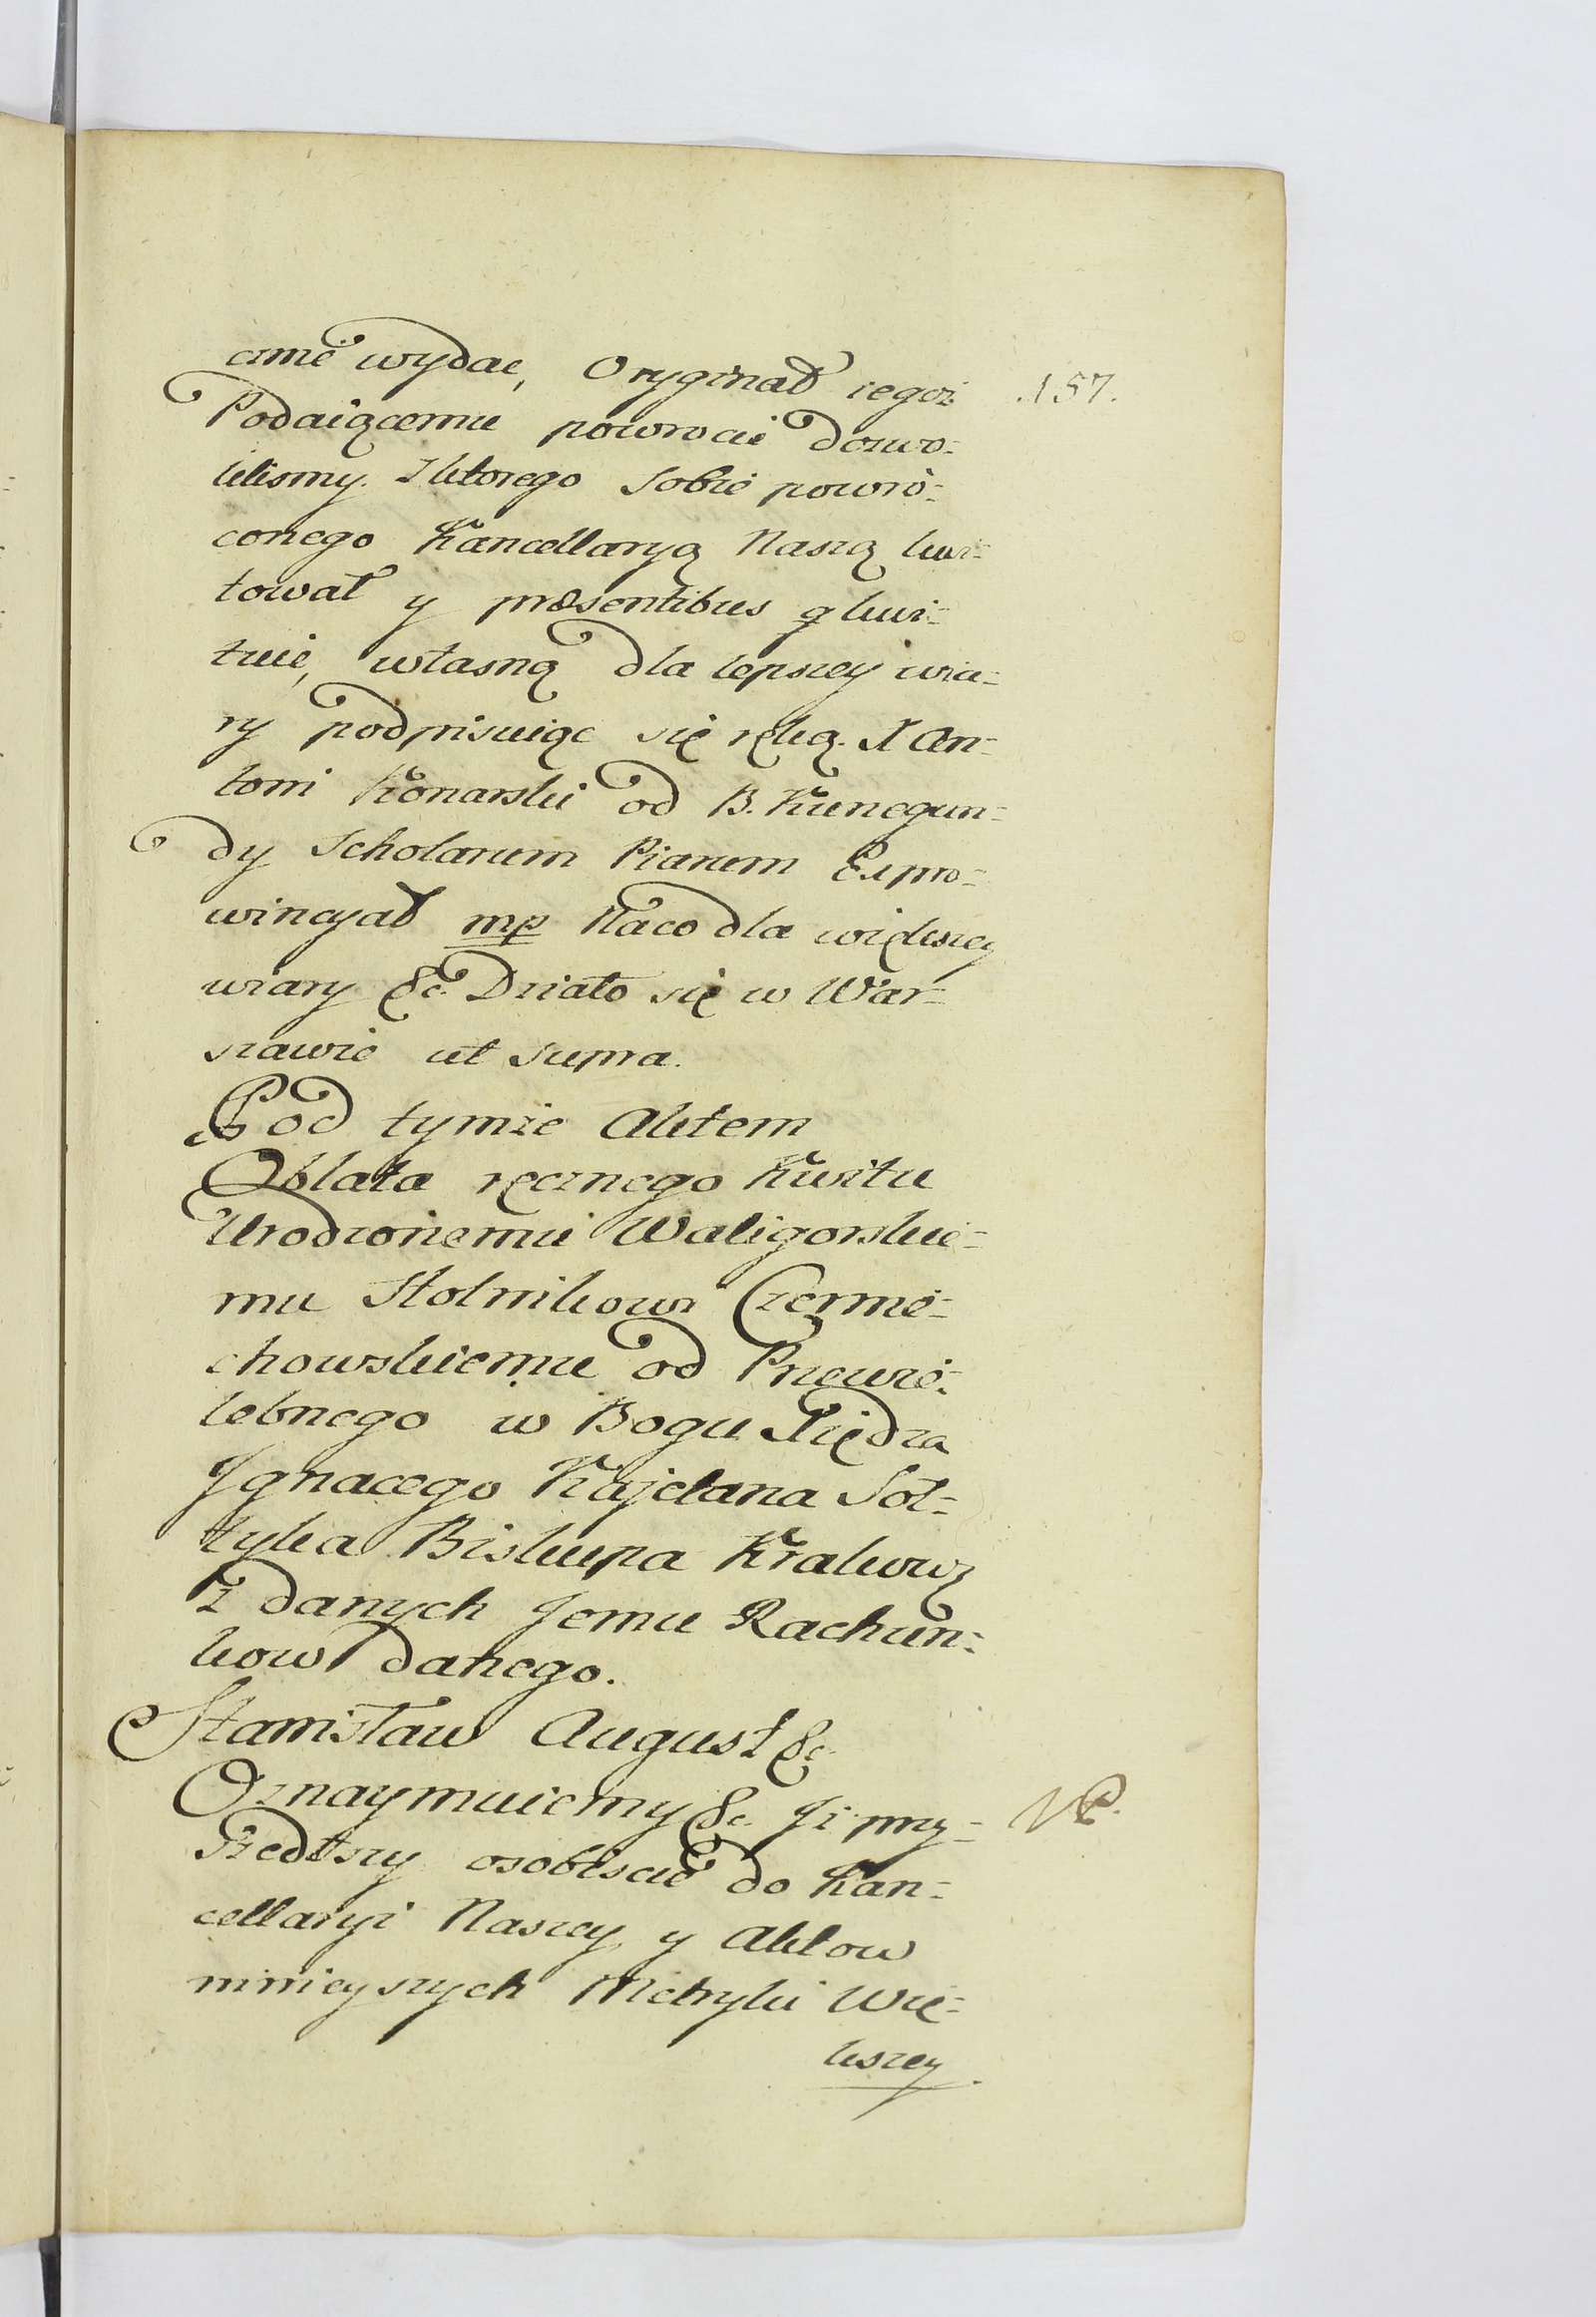 cznie wydać, Oryginał iegoż
157.
Podaiącemu powrocić dozwo=
lilismy. Z ktorego sobie powró=
conego Kancellaryą Naszą kwi=
tował y præsentibus q̲ kwi=
tuie, własną dla lepszey wia=
ry podpisuiąc się ręką. X An=
toni Konarski od B. Kunegun=
dy Scholarum Piarum Expro=
wincyał mp Na co dla większey
wiary &c. Działo się w War=
szawie ut supra.
Pod tymże Aktem
Oblata ręcznego Kwitu
Urodzonemu Waligorskie=
mu Stolnikowi Czernie=
chowskiemu od Przewie=
lebnego w Bogu Xiędza
Ignacego Kajetana Soł=
tyka Biskupa Krakows
z danych Jemu Rachun=
kow danego.
Stanisław August &c
Oznaymuiemy &c. Iż przy=
NP.
szedłszy osobiscie do Kan=
cellaryi Naszey y Aktow
ninieyszych Metryki Wię=
kszey